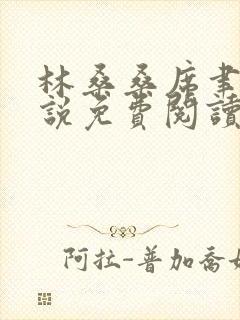 林桑桑席聿
說免費閱讀
阿拉-普加喬